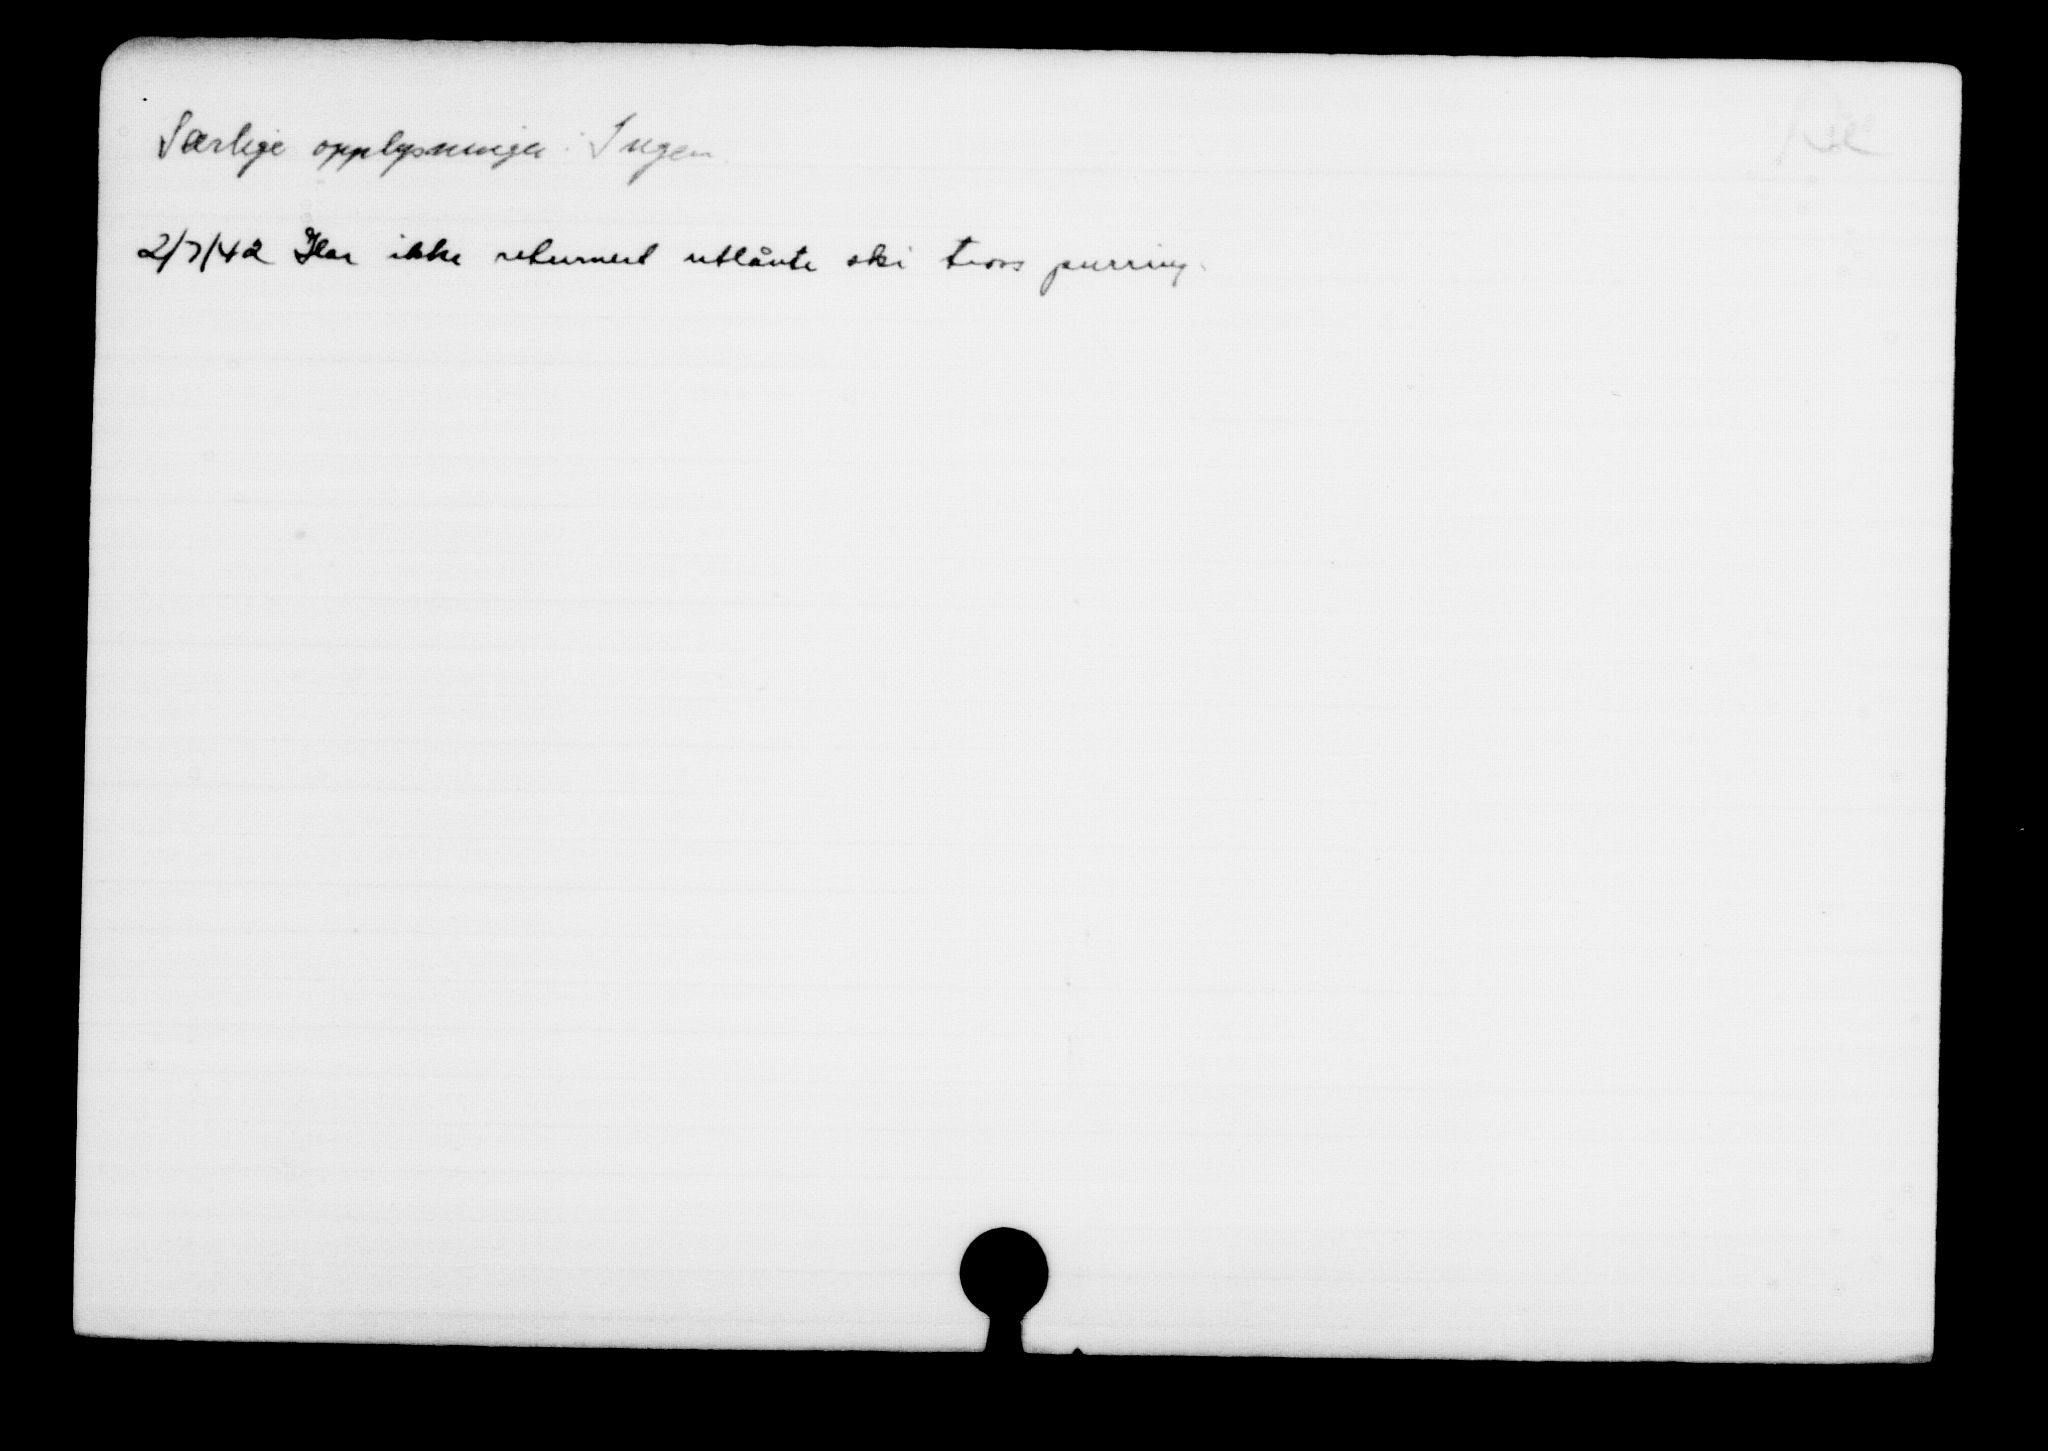 Særlige opplysninger: Ingen.
2/7/42 Har ikke returnert utlånte ski tross purring.